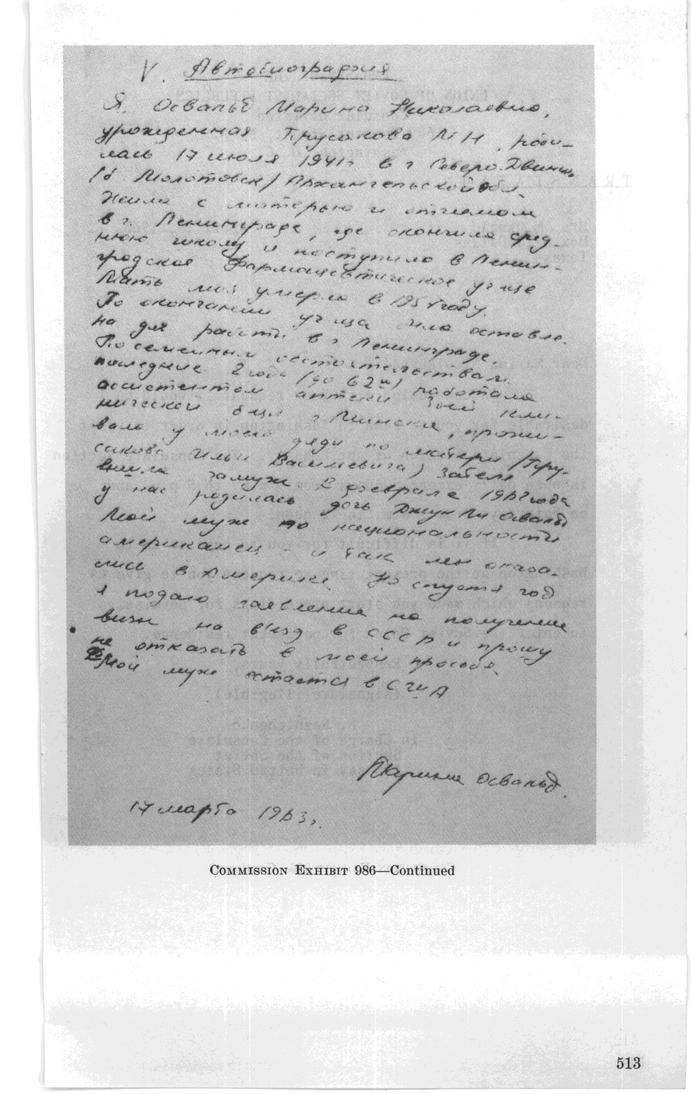 V. Автобиография
Я, Освальд Марина Николаевна,
урожденная Прусакова М Н, роди-
лась 17 июля 1941г в г Северо-Двинск
/б Молотовск/ Архангельской обл
Жила с матерью и отчимом
в г. Ленинграде, где окончила сред-
нюю школу и поступила в Ленин-
градское Фармацевтическое уч-ще
Мать моя умерла в 1957 году.
По окончании уч-ща была оставле-
на для работы в г Ленинграде.
По семейным обстоятельствам
последние 2 года (до 62г) работала
ассистентом аптеки кли-
нической б-цы г Минска, прожи-
вала у моего дяди по матери /Пру-
сакова Ильи Васильевича) Затем
вышла замуж В феврале 1962 года
у нас родилась дочь Джун Ли Освальд
Мой муж по национальности
американец - и так мы оказа-
лись в Америке. Но спустя год
я подаю заявление на получение
визы на в'езд в СССР и прошу
не отказать в моей просьбе.
Мой муж остается в США
Марина Освальд.
17 марта 1963г.
COMMISSION EXHIBIT 986—Continued
513